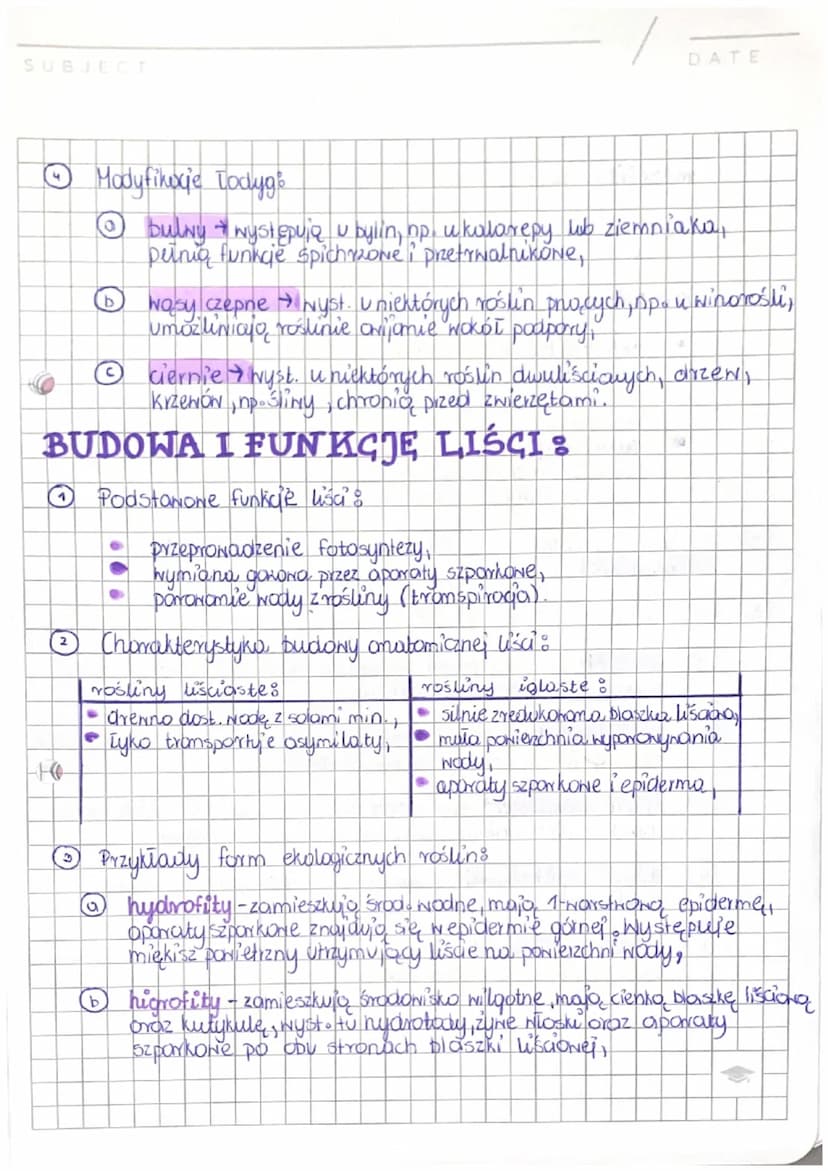 SUBJECT
DATE
4 Modyfikacje łodyg:
a bulwy → występują u bylin, np. u kalarepy lub ziemniaka,
pełnią funkcje spichrzone i przetrwalnikowe,
b wąsy czepne → wyst. u niektórych roślin pnących, np. u winorośli,
umożliwiają roślinie owijanie wokół podpory,
c ciernie → wyst. u niektórych roślin dwuliściowych, drzew,
krzewów, np. śliny, chronią przed zwierzętami.
BUDOWA I FUNKCJE LIŚCI:
1 Podstawowe funkcje liści:
• przeprowadzenie fotosyntezy,
• wymiana gazowa przez aparaty szparkowe,
• parowanie wody z rośliny (transpiracja).
2 Charakterystyka budowy anatomicznej liści:
rośliny liściaste:
• drewno dost. wodę z solami min.,
• łyko transportuje asymilaty,
rośliny iglaste:
• silnie zredukowana blaszka liściowa,
• mała powierzchnia wyparowywania
wody,
• aparaty szparkowe i epiderma,
3 Przykłady form ekologicznych roślin:
a hydrofity - zamieszkują środ. wodne, mają 1-warstwową epidermę,
aparaty szparkowe znajdują się w epidermie górnej. Występuje
miękisz powietrzny utrzymujący liście na powierzchni wody,
b higrofity - zamieszkują środowisko wilgotne, mają cienką blaszkę liściową
oraz kutykulę, wyst. tu hydatody, żywe włoski oraz aparaty
szparkowe po obu stronach blaszki liściowej,